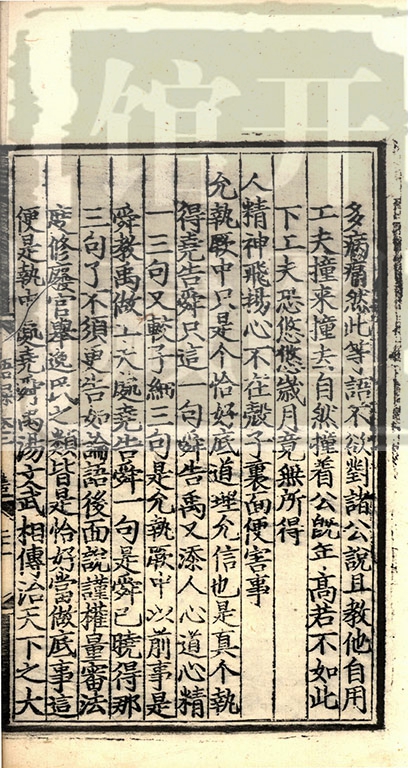 多病痛然此等語不欲對諸公說且教他自用
工夫撞來撞去自然撞着公旣年高若不如此
下工夫恐悠悠歲月竟無所得
人精神飛揚心不在殼子裏面便害事
允執厥中只是个恰好底道理允信也是真个執
得堯告舜只這一句舜告禹又添人心道心精
一三句又較子細三句是允執厥中以前事是
舜教禹做工夫處堯告舜一句是舜已曉得那
三句了不須更告如論語後面說謹權量審法
度修廢官舉逸民之類皆是恰好當做底事這
便是執中處堯舜禹湯文武相傳治天下之大